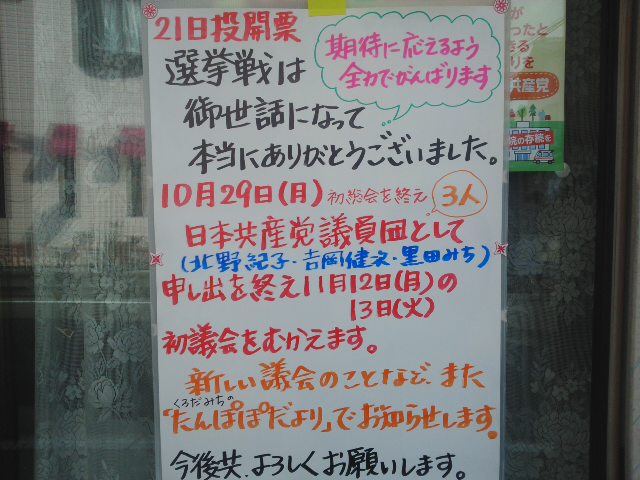 21日投開票
選挙戦は
期待に応えるよう
全力でがんばります
御世話になって
本当にありがとうございました。
10月29日(月)初総会を終え 3人
日本共産党議員団として
(北野紀子・吉岡健次・黒田みち)
申し出を終え11月12日(月)の
13日(火)
初議会をむかえます。
新しい議会のことなど、また
くろだみちの
「たんぽぽだより」でお知らせします。
今後共、よろしくお願いします。
が
ったと
きる
りを
共産党
院の存続を